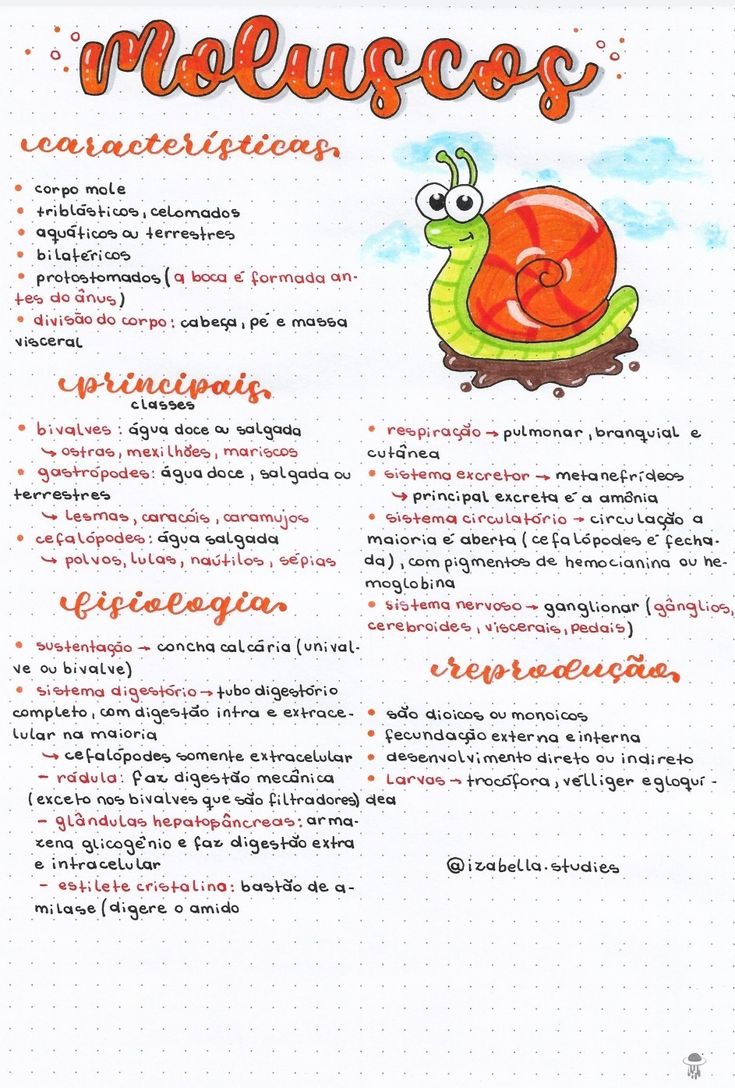 Moluscos
características
• corpo mole
• triblásticos, celomados
• aquáticos ou terrestres
• bilatéricos
• protostomados (a boca é formada an-
tes do ânus)
• divisão do corpo: cabeça, pé e massa
visceral
principais
classes
• bivalves: água doce ou salgada
↳ ostras, mexilhões, mariscos
• gastrópodes: água doce, salgada ou
terrestres
↳ lesmas, caracóis, caramujos
• cefalópodes: água salgada
↳ polvos, lulas, naútilos, sépias
fisiologia
• sustentação → concha calcária (unival-
ve ou bivalve)
• sistema digestório → tubo digestório
completo, com digestão intra e extrace-
lular na maioria
↳ cefalópodes somente extracelular
- rádula: faz digestão mecânica
(exceto nos bivalves que são filtradores)
- glândulas hepatopâncreas: arma-
zena glicogênio e faz digestão extra
e intracelular
- estilete cristalina: bastão de a-
milase (digere o amido
• respiração → pulmonar, branquial e
cutânea
• sistema excretor → metanefrídeos
↳ principal excreta é a amônia
• sistema circulatório → circulação a
maioria é aberta (cefalópodes é fecha-
da), com pigmentos de hemocianina ou he-
moglobina
• sistema nervoso → ganglionar (gânglios,
cerebroides, viscerais, pedais)
reprodução
• são dioicos ou monoicos
• fecundação externa e interna
• desenvolvimento direto ou indireto
• larvas → trocófora, vélliger e gloquí-
dea
@izabella.studies